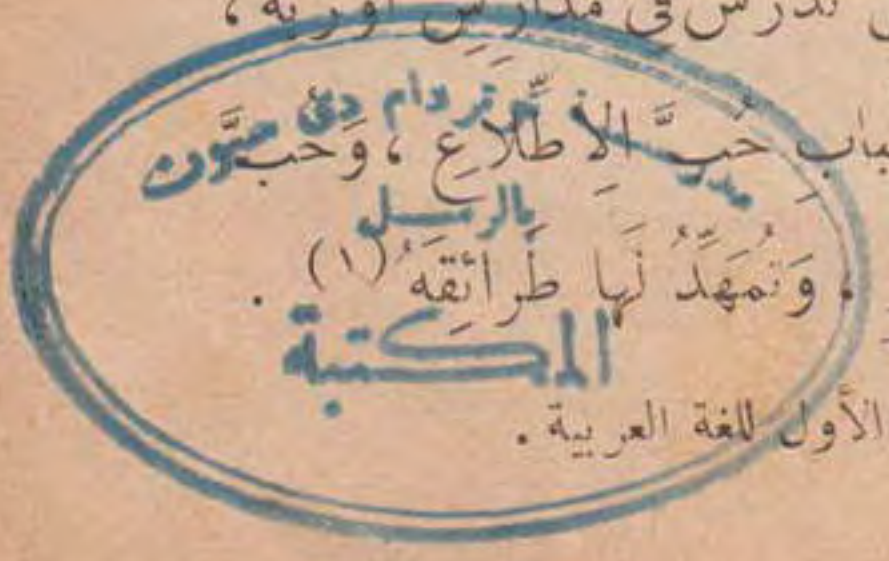 تدرس في مدارس أوربة ،
حُبَّ الِاطِّلَاعِ ، وَحُبَّ
نوتر دام دي سيون
بالرمل
وَنُمَهِّدُ لَهَا طَرَائِقَهُ (١) .
المكتبة
الأول للغة العربية .